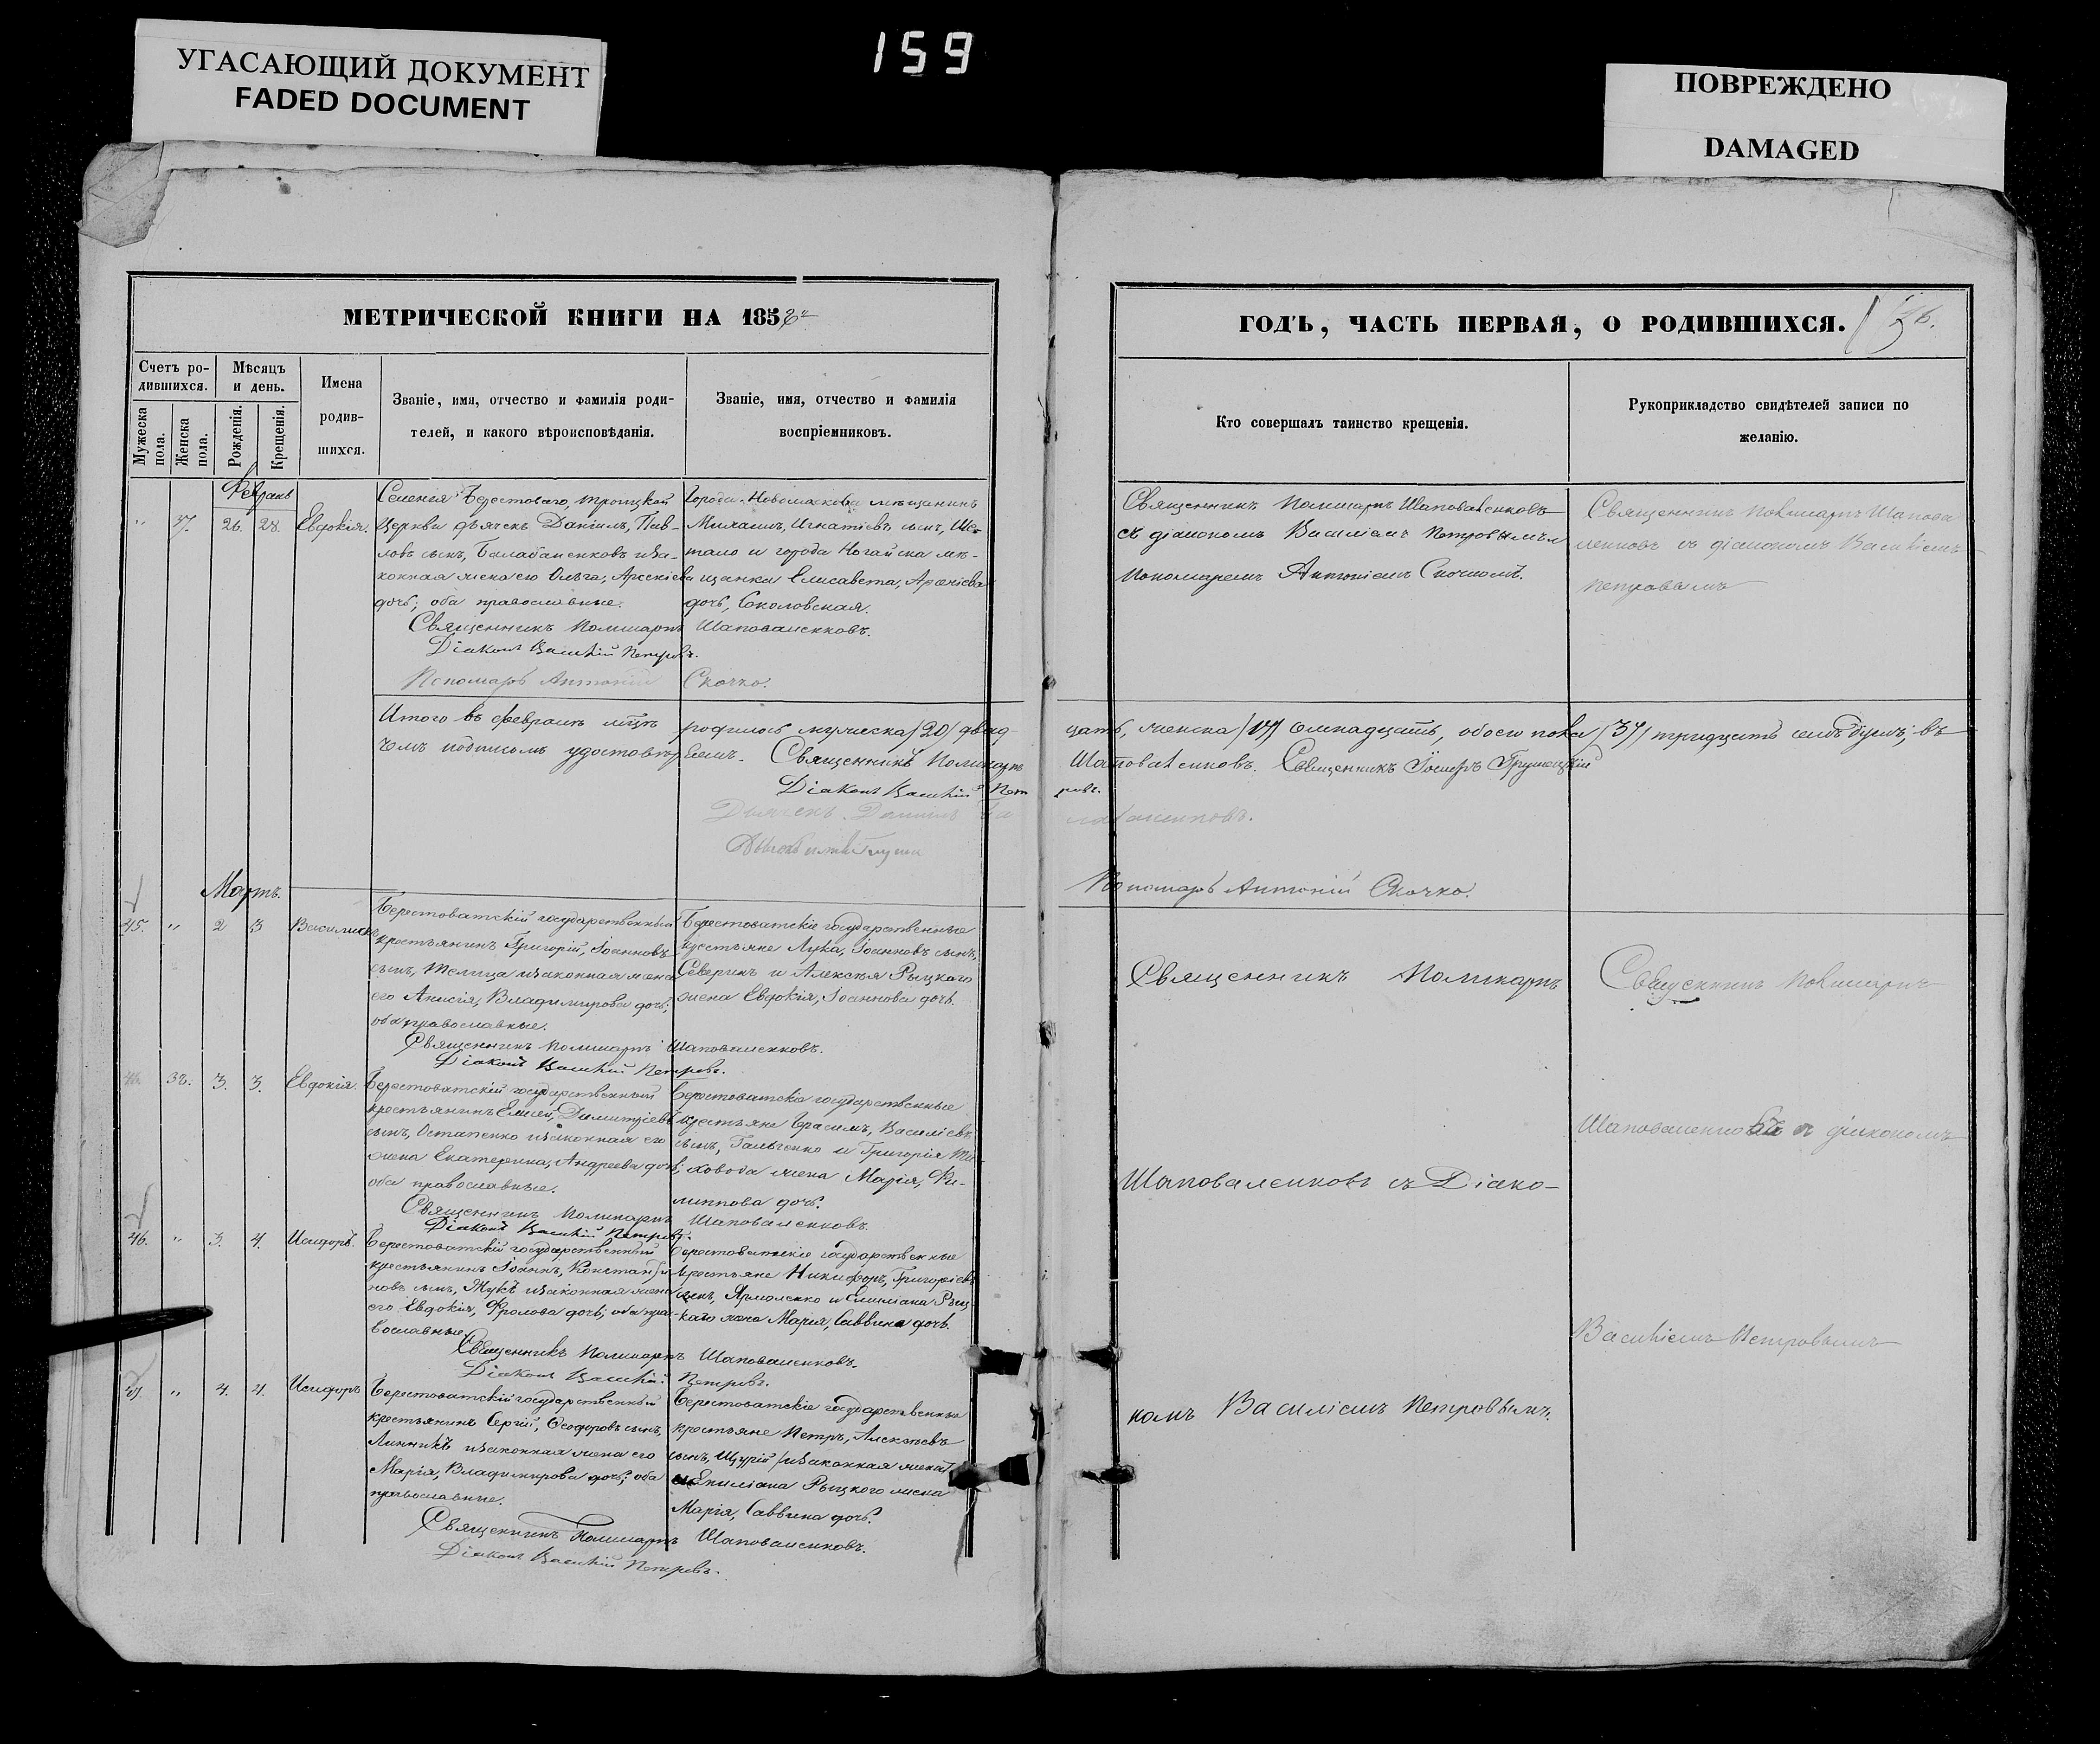 УГАСАЮЩИЙ ДОКУМЕНТ
FADED DOCUMENT
159
ПОВРЕЖДЕНО
DAMAGED
МЕТРИЧЕСКОЙ КНИГИ НА 185
Счетъ ро-
дившихся.
Мужеска
пола.
Женска
пола.
Мѣсяцъ
и день.
Рожденія.
Крещенія.
Имена
родив-
шихся.
Званіе, имя, отчество и фамилія роди-
телей, и какого вѣроисповѣданія.
Званіе, имя, отчество и фамилія
воспріемниковъ.
37. 26. 28. Евдокія.
Селенія Берестоваго, Троицкой
Церкви дьячекъ Даніилъ, Пав-
ловъ сынъ, Балабаненковъ и за-
конная жена его Ольга, Арсеніева
дочь; оба православные.
Города Новомосковска мѣщанинъ
Михаилъ, Игнатіевъ сынъ, Ше-
и города Ногайска мѣ-
щанка Елисавета, Арсеніева
дочь, Соколовская.
Священникъ Поликарпъ Шаповаленковъ.
Діаконъ Василій Петровъ.
Пономарь Антоній Скочко.
Итого въ февралѣ родилось мужеска /20/ двад-
чемъ подписомъ удостовѣряемъ. Священникъ Поликарпъ
Діаконъ Василій Пет
Дьячекъ Даніилъ Ба
Мартъ.
45. " 2 3
Берестоватскій государственный
крестьянинъ Григорій, Іоанновъ
сынъ, Телица и законная жена
его Анисія, Владимирова дочь;
оба православные.
Берестоватскіе государственные
крестьяне Лука, Іоанновъ сынъ,
Северинъ и Алексѣя Рыцкого
жена Евдокія, Іоаннова дочь.
Священникъ Поликарпъ Шаповаленковъ.
Діаконъ Василій Петровъ.
38. 3. 3. Евдокія.
Берестоватскій государственный
крестьянинъ Елисей, Димитріевъ
сынъ, Остапенко и законная его
жена Екатерина, Андреева дочь;
оба православные.
Берестоватскіе государственные
крестьяне Герасимъ, Василіевъ
сынъ, Гальченко и Григорія
жена Марія, Фи-
липпова дочь.
Священникъ Поликарпъ Шаповаленковъ.
Діаконъ Василій Петровъ.
46. " 3. 4. Исидоръ.
Берестоватскій государственный
крестьянинъ Іоаннъ, Константи-
новъ сынъ, Жукъ и законная жена
его Евдокія, Фролова дочь; оба пра-
вославные.
Берестоватскіе государственные
крестьяне Никифоръ, Григоріевъ
сынъ, Ярмоленко и Емиліана Рыц-
каго жена Марія, Саввина дочь.
Священникъ Поликарпъ Шаповаленковъ.
Діаконъ Василій Петровъ.
47. " 4. 4. Исидоръ
Берестоватскій государственный
крестьянинъ Сергій, Ѳеодоровъ сынъ,
Линникъ и законная жена его
Марія, Владимирова дочь; оба
православные.
Берестоватскіе государственные
крестьяне Петръ, Алексѣевъ
сынъ, Щурій /и законная жена/
и Емиліана Рыцкого жена
Марія, Саввина дочь.
Священникъ Поликарпъ Шаповаленковъ.
Діаконъ Василій Петровъ.
ГОДЪ, ЧАСТЬ ПЕРВАЯ, О РОДИВШИХСЯ.
Кто совершалъ таинство крещенія.
Рукоприкладство свидѣтелей записи по
желанію.
Священникъ Поликарпъ Шаповаленковъ
съ діакономъ Василіемъ Петровымъ и
пономаремъ Антоніемъ Скочкомъ.
Священникъ Поликарпъ Шапова
ленковъ съ діакономъ Василіемъ
Петровымъ
цать, женска /17/ семнадцать, обоего пола /37/ тридцать семь душъ; въ
Шаповаленковъ. Священникъ Іосифъ
ровъ.
лабаненковъ.
Пономарь Антоній Скочко.
Священникъ Поликарпъ
Шаповаленковъ съ Діако-
номъ Василіемъ Петровымъ.
Священникъ Поликарпъ
Шаповаленковъ съ діакономъ
Василіемъ Петровымъ